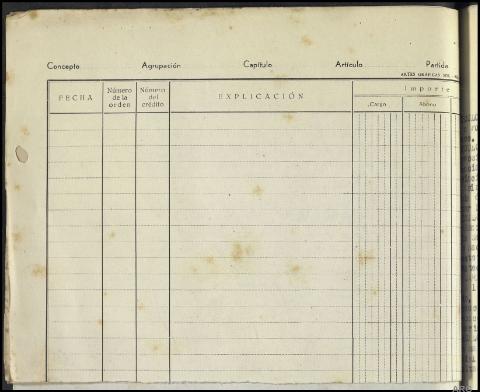 Concepto Agrupación Capítulo Artículo Partida
ARTES GRÁFICAS
FECHA Número de la orden Número del crédito EXPLICACIÓN Importe
Cargo Abono